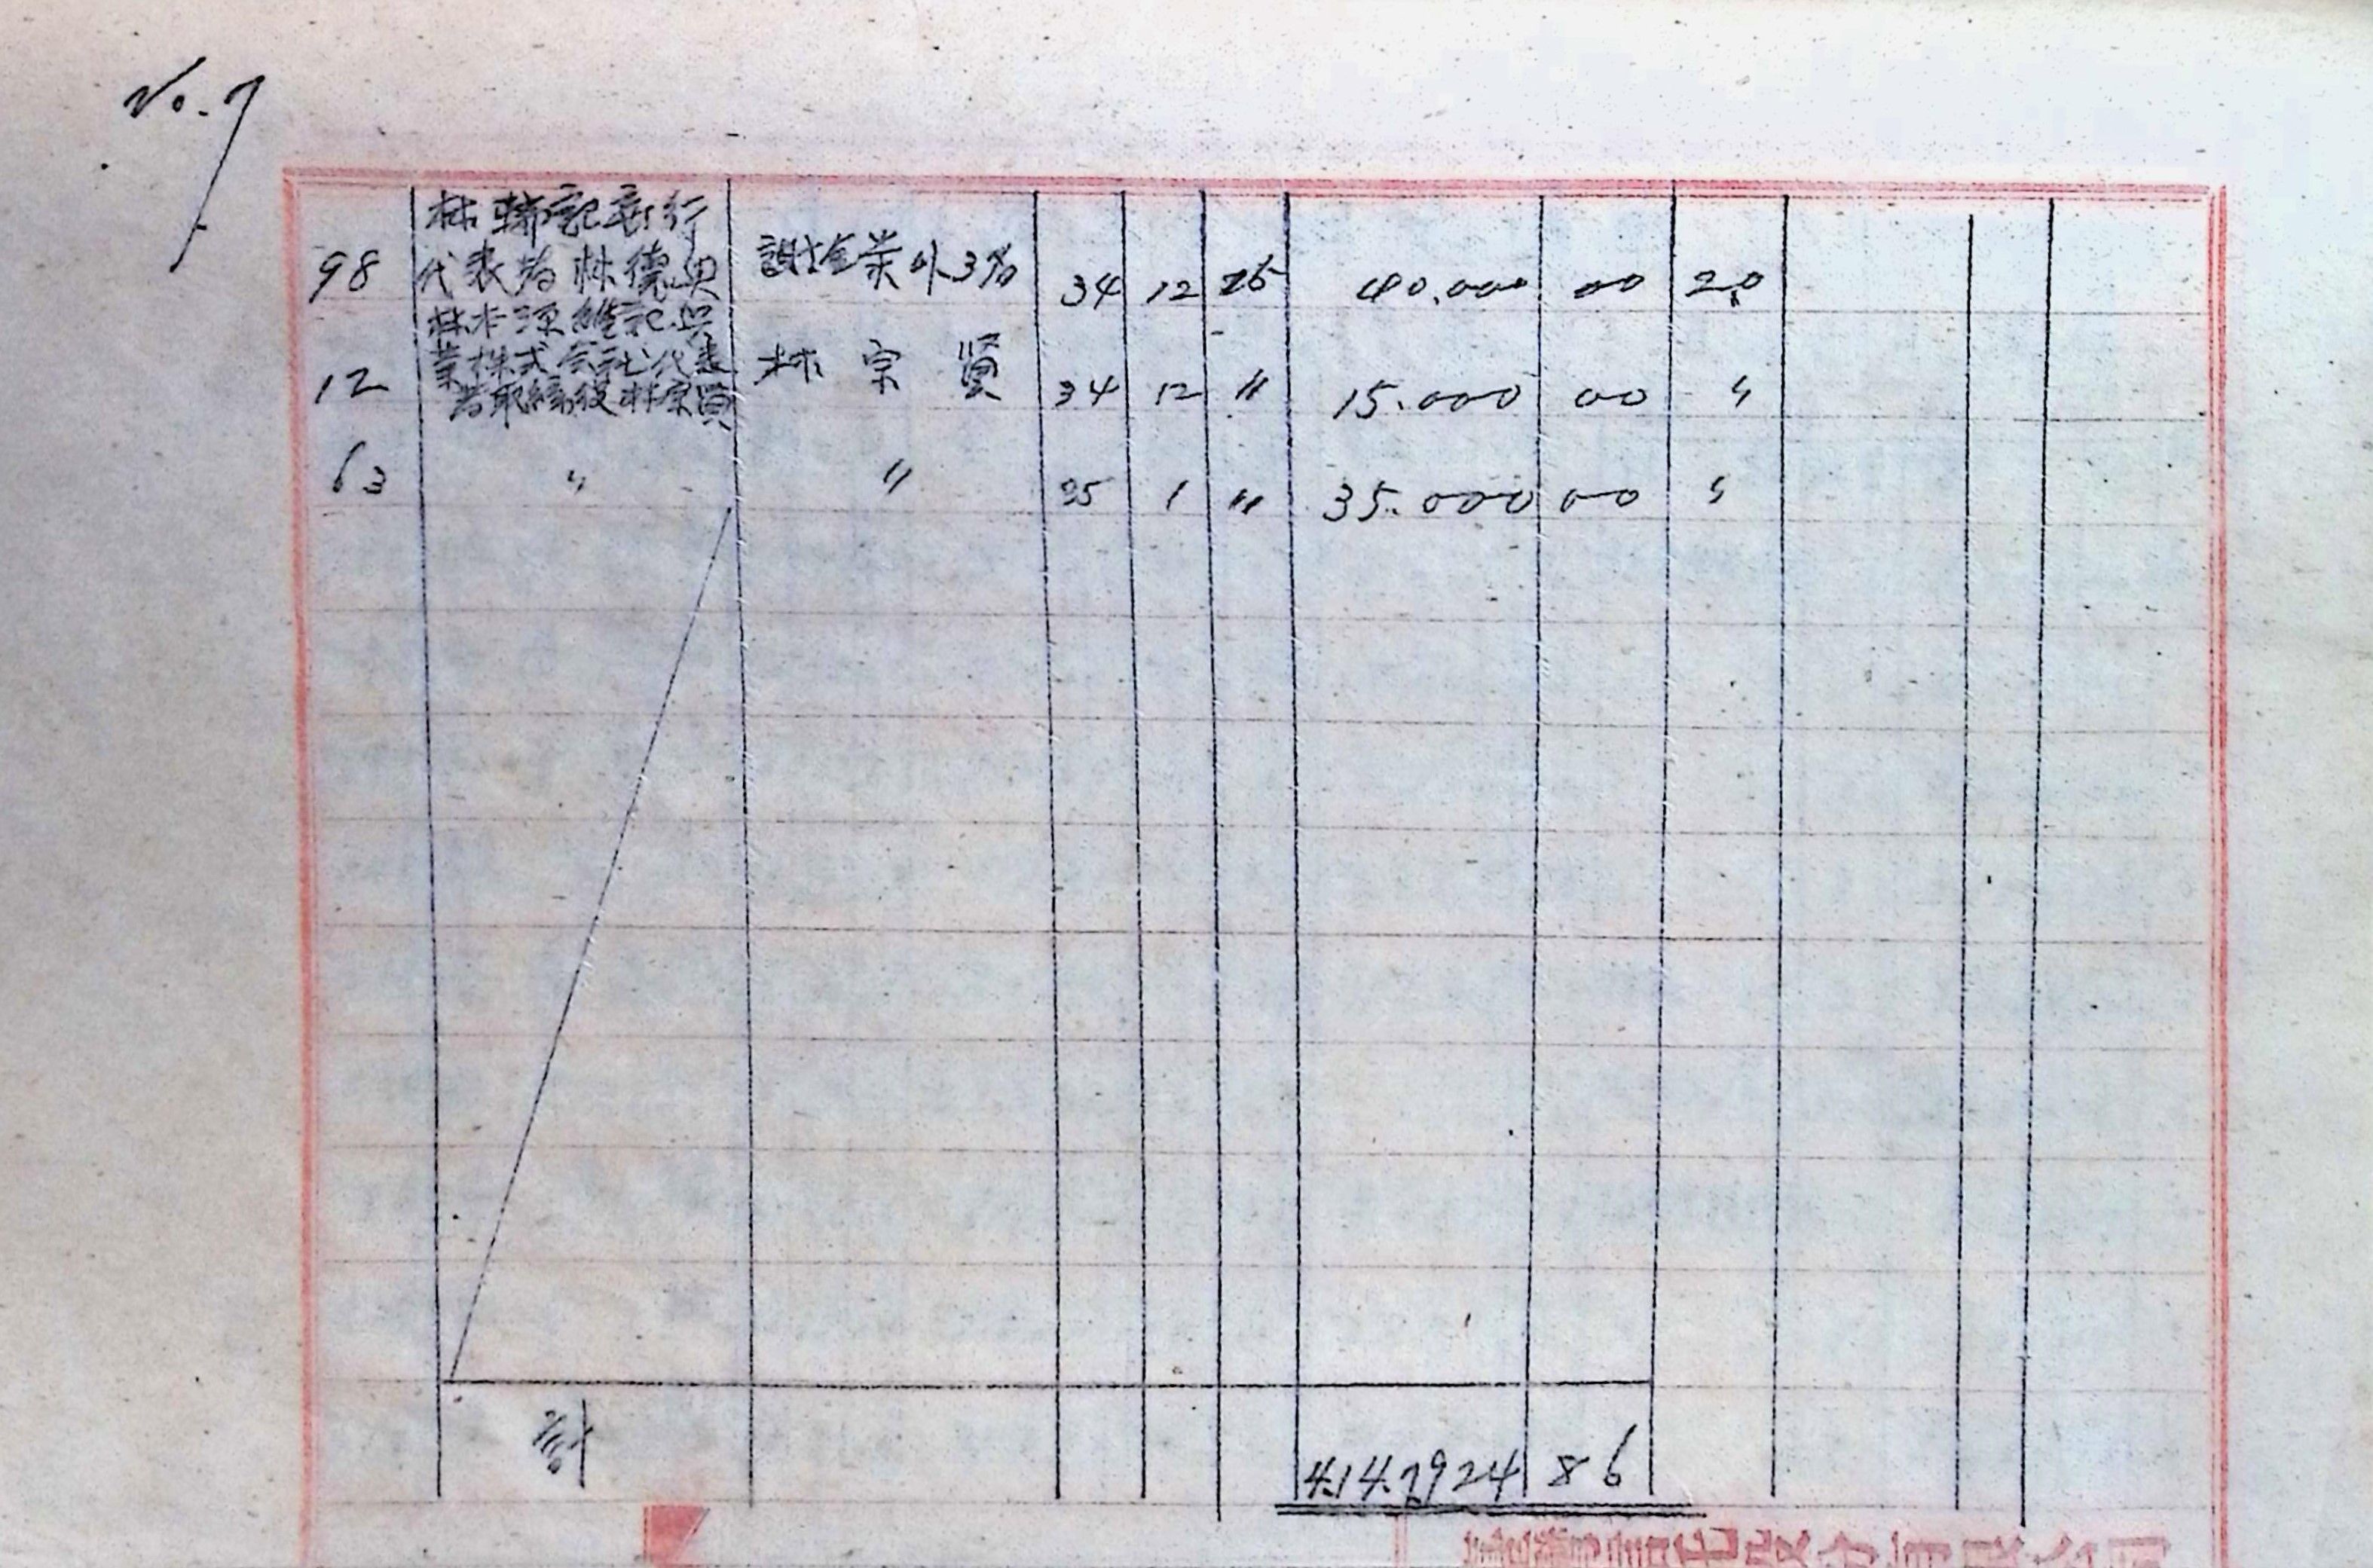 No.7
林輔記商行
98 代表者林德興 謝金業外3名 34 12 25 40.000 00 2.0
林本源維記興
12 業株式会社代表 林宗賢 34 12 〃 15.000 00 〃
者取締役林宗賢
63 〃 〃 35 1 〃 35.000 00 〃
計 4.147.924 86